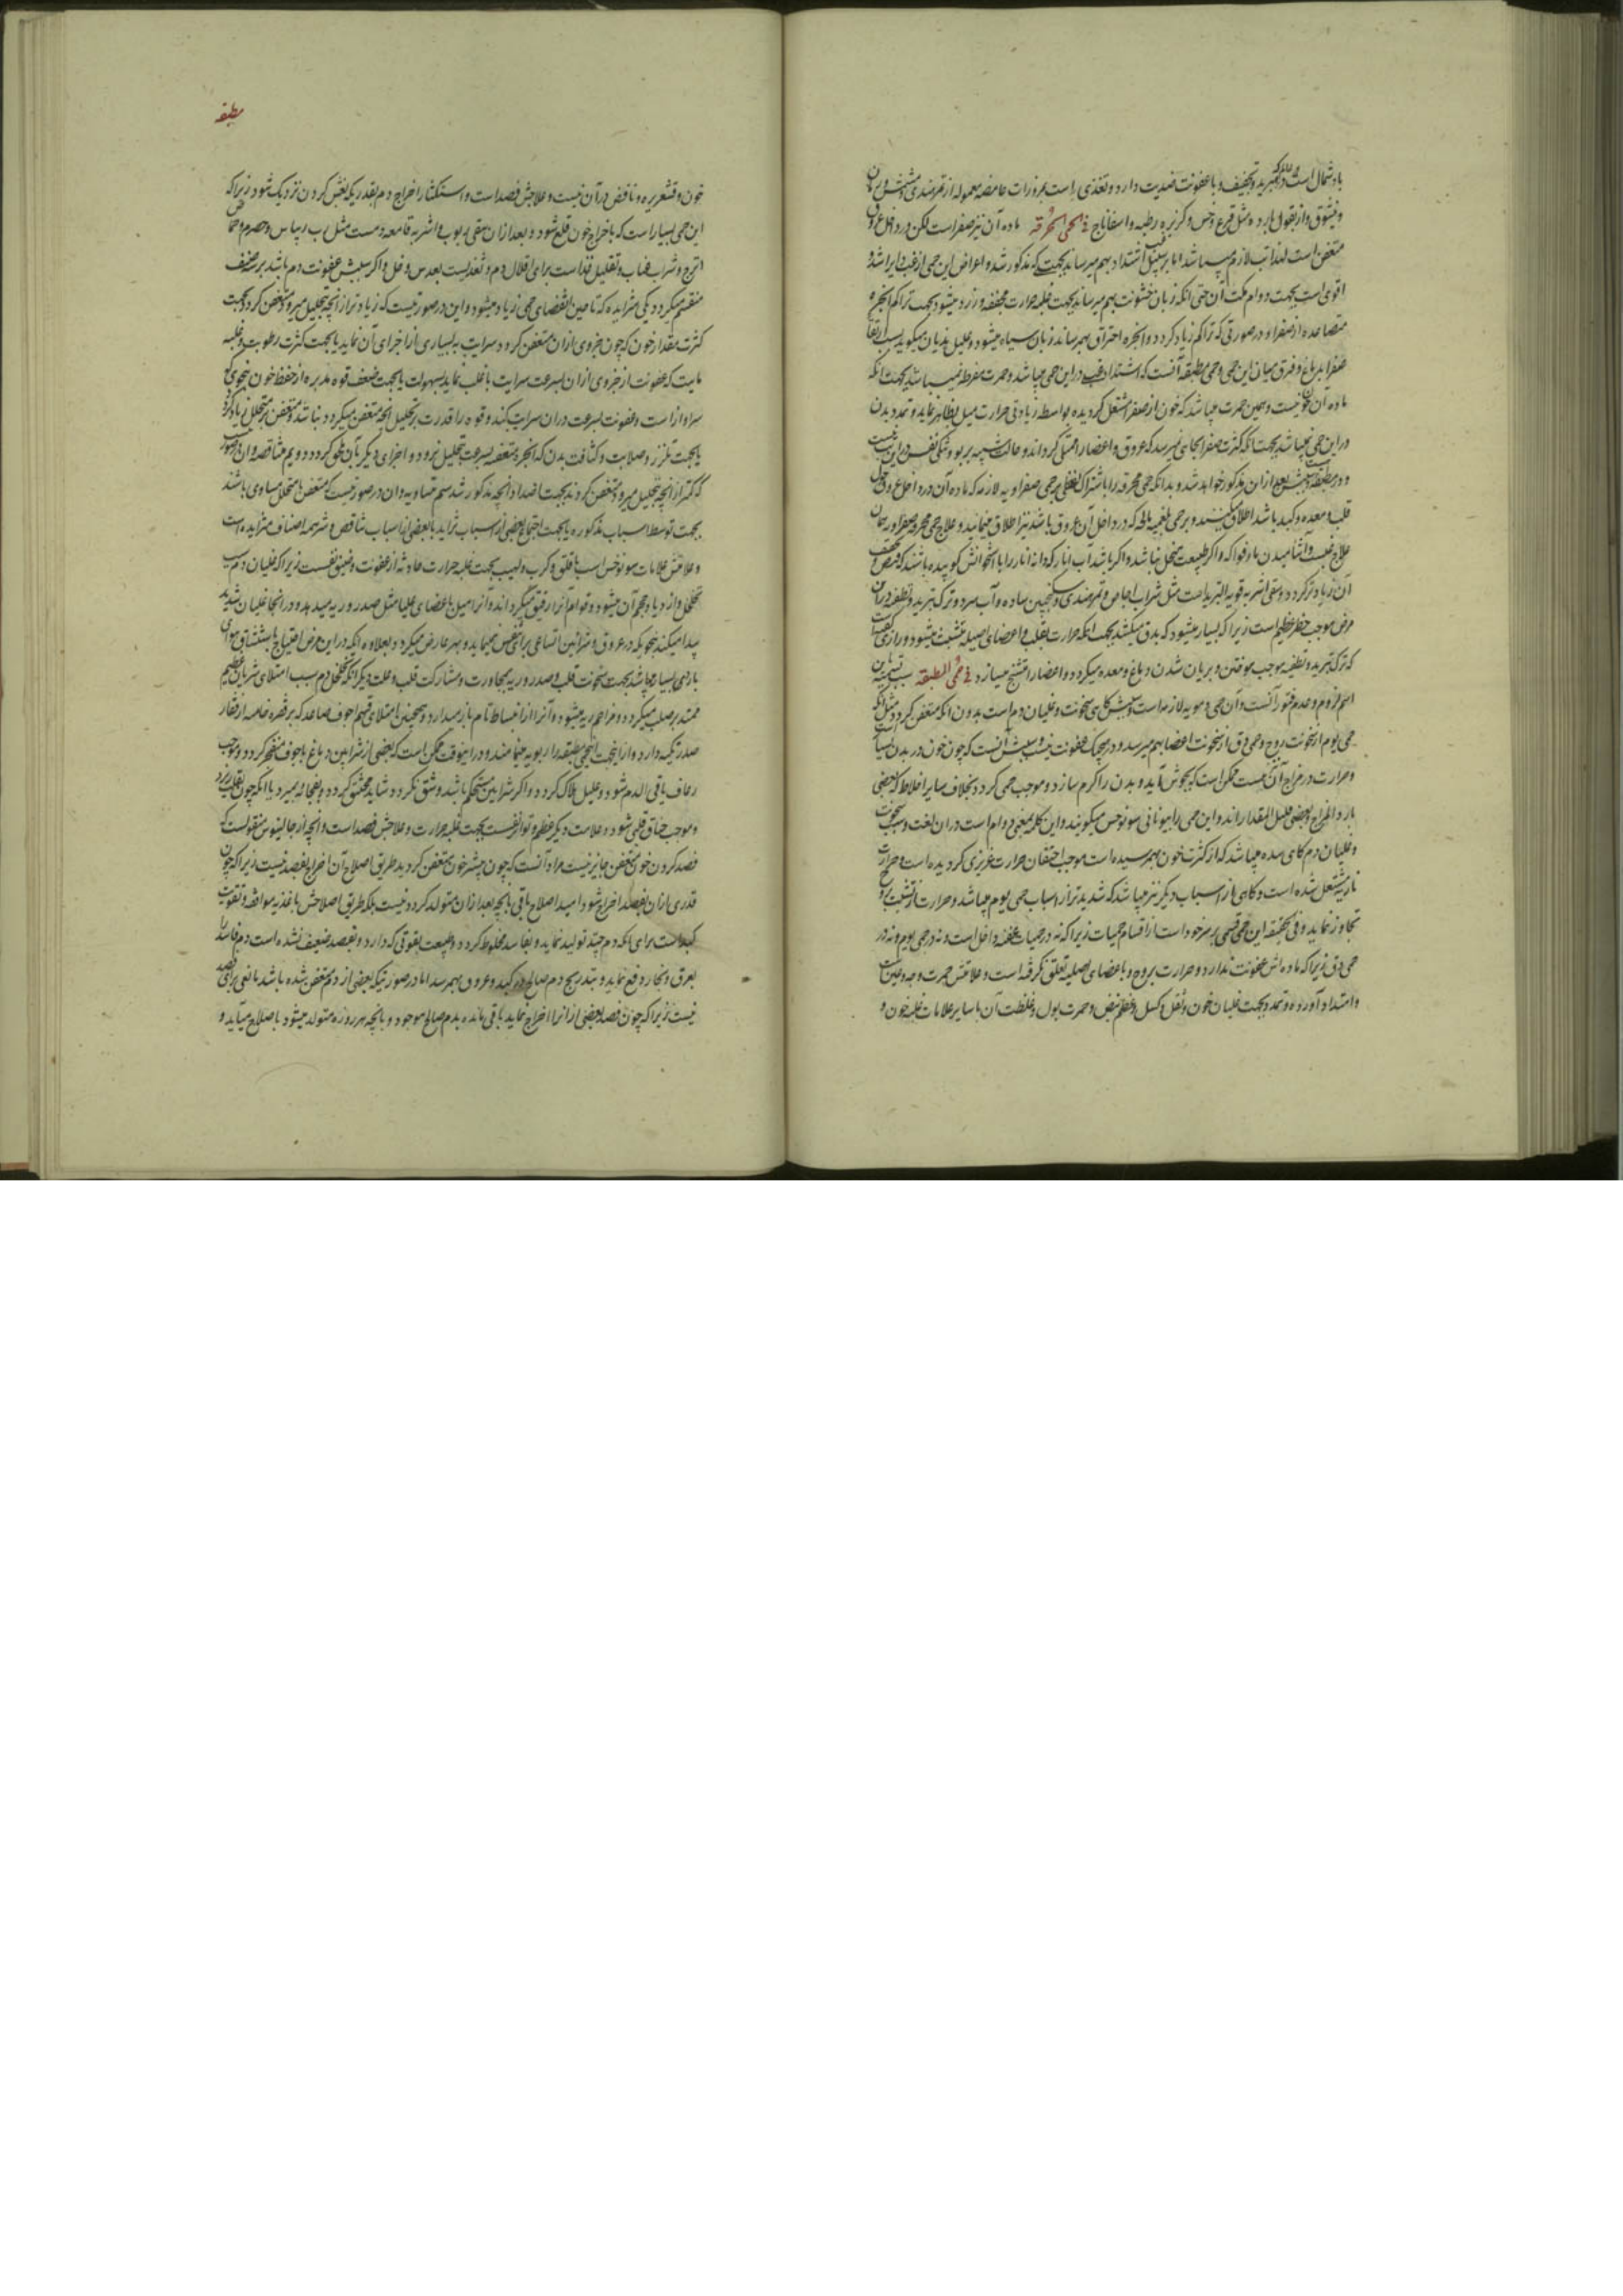 باد شمال است و تبرید و تجفیف و با عفونت ضدیت دارد و تغذی است بمزورات حامضه معموله از تمرهندی و مشمش و رمان
و از بقول بارده مثل قرع و خس و کزبره رطبه و اسفاناج فی الحمی المحرقه ماده آن نیز صفراست لکن در داخل عروق
متعفن است لهذا تب لازم میباشد اما بر سبیل غب اشتداد بهم میرساند بجهتی که مذکور شد و اعراض این حمی از غب دایرا شد و
اقوی است بجهت دوام مکث آن حتی آنکه زبان خشونت بهم میرساند بجهت غلبه حرارت مجففه و زرد میشود بجهت تراکم ابخره
متصاعده از صفرا و در صورتی که تراکم زیاد گردد و ابخره احتراق بهم رساند زبان سیاه میشود و علیل هذیان میگوید بسبب ارتقاء
صفرا بدماغ و فرق میان این حمی و حمی مطبقه آنست که اشتداد غب در این حمی میباشد و حمرت مفرط نمیباشد بجهت آنکه
ماده آن خون نیست و همین حمرت میباشد که خون از صفرا مشتعل گردیده بواسطه زیادتی حرارت میل بظاهر نماید و تمدد بدن
در این حمی نمیباشد بجهت آنکه کثرت صفرا بجای نمیرسد که عروق و اعضا را ممتلی گرداند و حالت شبیه بربو و تنگی نفس در این نیست
و در مطبقه هست بعد از این مذکور خواهد شد و بدانکه حمی محرقه را باشتراک لفظی بر حمی صفراویه لازمه که ماده آن در داخل عروق حوالی
قلب و معده و کبد باشد اطلاق میکنند و بر حمی بلغمیه مالحه که در داخل آن عروق باشد نیز اطلاق مینمایند و علاج حمی محرقه صفراویه همان
علاج غب است و آشامیدن ماء فواکه و اگر طبیعت منحل نباشد و اگر باشد آب انار که دانه انار را با استخوانش کوبیده باشند که قبض
آن زیاد تر گردد و سقی اشربه قویة التبرید است مثل شراب اجاص و تمرهندی و سکنجبین ساده و آب سرد و ترک تبرید و تطفیه در این
مرض موجب خطر عظیم است زیرا که بسیار میشود که بدق میکشد بجهت آنکه حرارت بقلب و اعضای اصلیه متشبث میشود و رازی گفته است
که ترک تبرید و تطفیه موجب سوختن و بریان شدن دماغ و معده میگردد و اعضا را متشنج میسازد فی حمی المطبقه سبب تسمیه باین
اسم لزوم و عدم فتور آنست و آن حمی دمویه لازمه است و سببش گاهی سخونت و غلیان دم است بدون آنکه متعفن گردد مثل آنکه
حمی یوم از سخونت روح و حمی دق از سخونت اعضا بهم میرسد و در هیچیک عفونت نیست و سببش آنست که چون خون در بدن بسیار است
و حرارت در مزاج آن هست ممکن است که بجوش آید و بدن را گرم سازد و موجب حمی گردد بخلاف سایر اخلاط که بعضی
بارد المزاج و بعضی قلیل المقدار اند و این حمی را بیونانی سونوخس میگویند و این کلمه بمعنی دوام است در ان لغت و سبب سخونت
و غلیان دم گاهی سده میباشد که از کثرت خون بهم رسیده است موجب احتقان حرارت غریزی گردیده است و حرارت
ناریه مشتعل شده است و گاهی از اسباب دیگر نیز میباشد که شدیدتر از اسباب حمی یوم میباشد و حرارت از تشبث بروح
تجاوز نماید و فی الحقیقه این حمی قسمی بر سر خود است از اقسام حمیات زیرا که نه در حمیات عفنه داخل است و نه در حمی یوم و نه در
حمی دق زیرا که ماده اش عفونت ندارد و حرارت بروح و با عضای اصلیه تعلق نگرفته است و علامتش حمرت وجه و عین است
و امتداد آورده و تمدد بجهت غلیان خون و ثقل و کسل و عظم نبض و حمرت بول و غلظت آن با سایر علامات غلبه خون و
مطبقه
خون و قشعریره و نافض در آن نیست و علاجش فصد است و استکثار اخراج دم بقدریکه بغشی کردن نزدیک شود زیرا که
این حمی بسیار است که با خراج خون قلع شود و بعد از ان سقی ربوب و اشربه قامعه دمست مثل رب ریباس و حصرم و حماض
اترج و شراب عناب و تقلیل غذاست برای اقلال دم و تغذیست بعدس و خل و اگر سببش عفونت دم باشد بر سه صنف
منقسم میگردد یکی متزایده که تا حین انقضای حمی زیاد میشود و این در صورتیست که زیادتر از آنچه تحلیل میرود متعفن گردد بجهت
کثرت مقدار خون که چون جزوی از ان متعفن گردد سرایت به بسیاری از اجزای آن نماید یا بجهت کثرت رطوبت و غلبه
مایت که عفونت از جزوی از ان بسرعت سرایت باغلب نماید بسهولت یا بجهت ضعف قوه مدبره از حفظ خون بنحوی که
سزاوار است و عفونت بسرعت در ان سرایت کند و قوه را قدرت بر تحلیل آنچه متعفن میگردد نباشد و متعفن بر متحلل زیاد گردد
یا بجهت تلزز و صلابت و کثافت بدن که ابخره متعفنه بسرعت تحلیل نرود و اجزای دیگر بآن ملحق گردد دویم متناقصه و ان در صورتیست
که کمتر از آنچه تحلیل میرود متعفن گردد بجهت اضداد آنچه مذکور شد سیم متساویه و ان در صورتیست که متعفن با متحلل مساوی باشد
بجهت توسط اسباب مذکوره یا بجهت اجتماع بعضی از اسباب تزاید با بعضی از اسباب تناقص و شر همه اصناف متزایده است
و علامتش علامات سونوخس است با قلق و کرب و لهیب بجهت غلبه حرارت حادثه از عفونت و ضیق نفسست زیرا که غلیان دم سبب
تخلخل و ازدیاد حجم آن میشود و قوام آنرا رقیق میگرداند و آنرا میل باعضای علیا مثل صدر و ریه میدهد و در انجا غلیان شدید
پیدا میکند بنحویکه در عروق و شرائین اتساعی برای تنفس نمیماید و بهر عارض میگردد بعلاوه آنکه در این مرض احتیاج باستنشاق هوای
بارد بسیار میباشد بجهت سخونت قلب و صدر و ریه بمجاورت و مشارکت قلب و علت دیگر آنکه تخلخل دم سبب امتلای شریان عظیم
ممتد بر صلب میگردد و مزاحم ریه میشود و آنرا از انبساط تام باز میدارد و همچنین امتلای قسم اجوف صاعد که بر فقره خامسه از فقار
صدر تکیه دارد و از اینجهت این حمی مطبقه را ربویه مینامند و در اینوقت ممکن است که بعضی از شرایین دماغ یا جوف منفجر گردد و موجب
رعاف یا قی الدم شود و علیل هلاک گردد و اگر شرایین مستحکم باشد و شق نگردد شاید مختنق گردد و بفجائه بمیرد یا آنکه چون بقلب ریزد
و موجب خناق قلبی شود و علامت دیگر عظم و تواتر نفسست بجهت غلبه حرارت و علاجش فصد است و آنچه از جالینوس منقولست که
فصد کردن خون متعفن جایز نیست مراد آنست که چون بیشتر خون متعفن گردید طریق اصلاح آن اخراج بفصد نیست زیرا که چون
قدری از ان بفصد اخراج شود امید اصلاح باقی بآنچه بعد از ان متولد گردد نیست بلکه طریق اصلاحش با غذیه موافقه و تقویت
کبد است برای آنکه دم جید تولید نماید و بفاسد مخلوط گردد و طبیعت بقوتی که دارد و بفصد ضعیف نشده است دم فاسد را
بعرق و بخار دفع نماید و بتدریج دم صالح در کبد و عروق بهم رسد اما در صورتیکه بعضی از دم متعفن شده باشد مانعی برای فصد
نیست زیرا که چون فصد بعضی از انرا اخراج نماید باقی مانده بدم صالح موجود و بآنچه هر روزه متولد میشود با صلاح میآید و